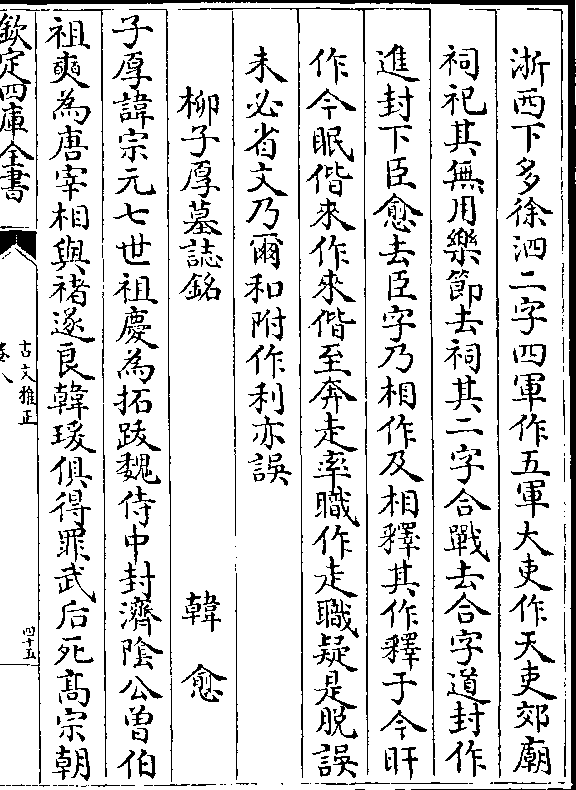 浙西下多徐泗二字四軍作五軍大吏作天吏郊廟
祠祀其無用樂節去祠其二字合戰去合字道封作
進封下臣愈去臣字乃相作及相釋其作釋于今旰
作今眠偕來作來偕至奔走率職作走職疑是脫誤
未必省文乃爾和附作利亦誤
柳子厚墓誌銘
韓愈
子厚諱宗元七世祖慶為拓跋魏侍中封濟陰公曾伯
祖奭為唐宰相與褚遂良韓瑗俱得罪武后死髙宗朝
欽定四庫全書
古文雅正
卷八
四十五